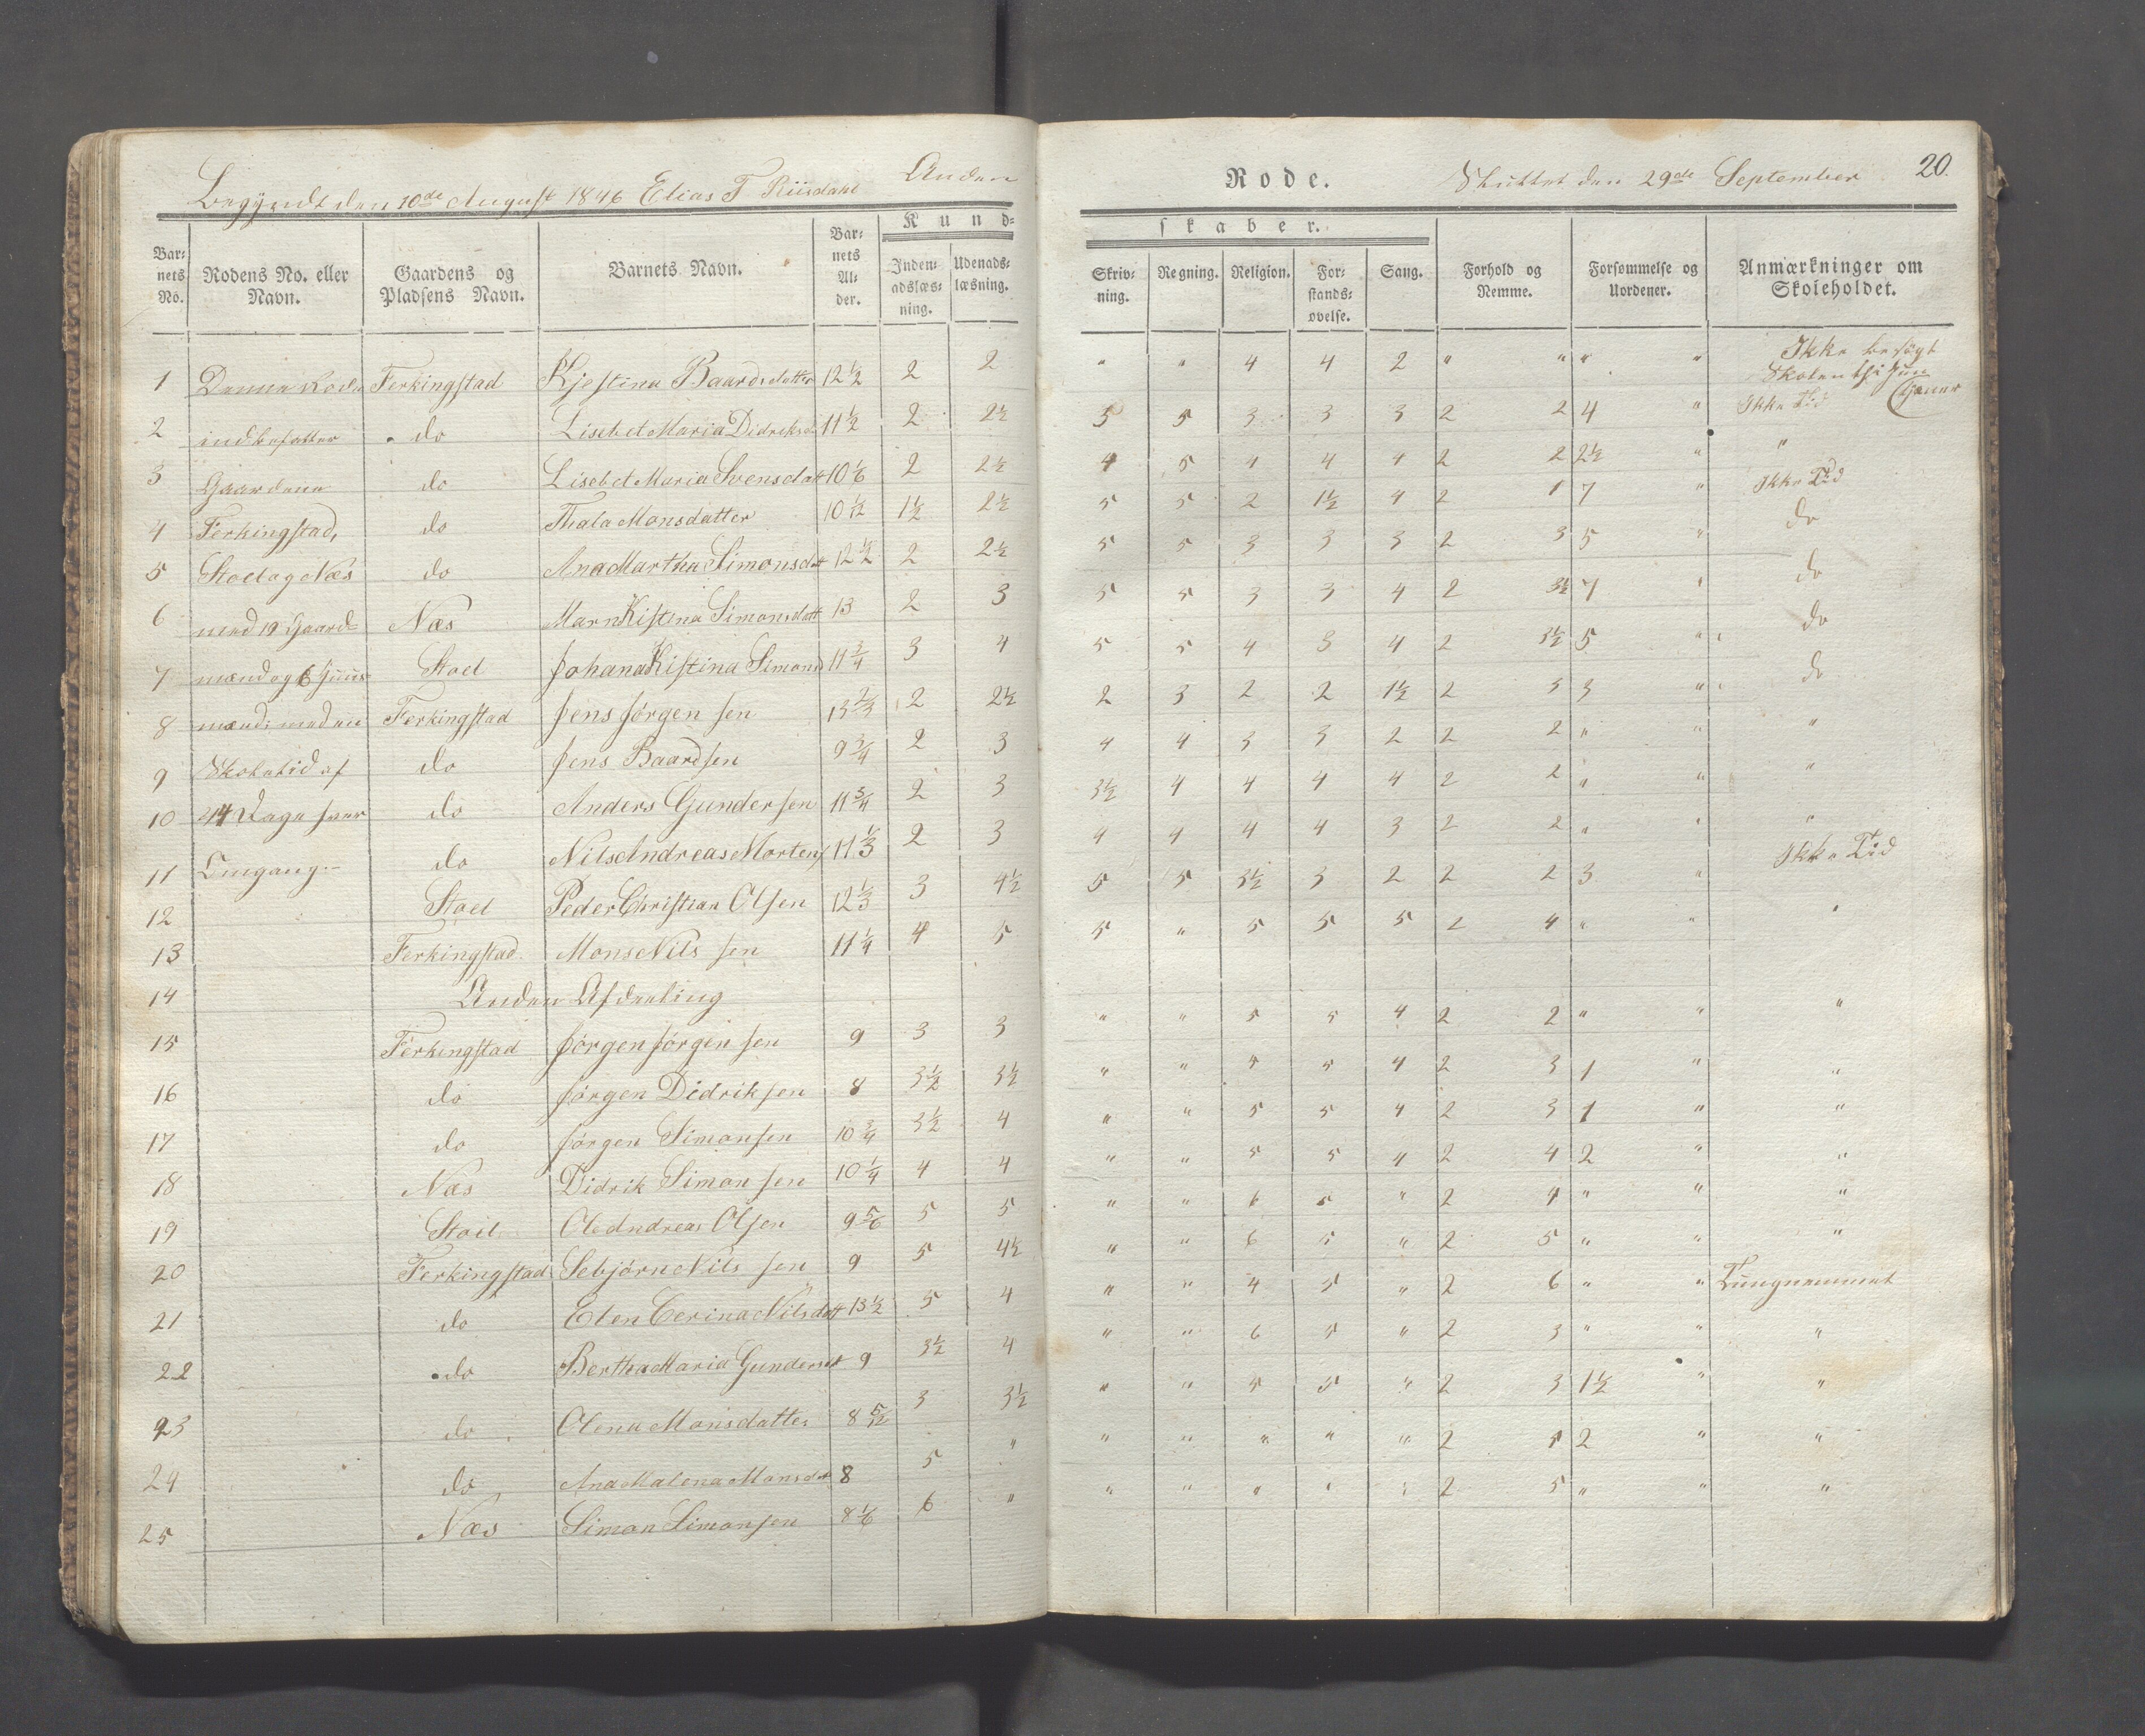 Begyndt den 10de August 1846 Elias T Riisdahl Anden Rode. Sluttet den 29de September 20.
Kundskaber.
Barnets No. Rodens No. eller Navn. Gaardens og Pladsens Navn. Barnets Navn. Barnets Alder. Indenadslæsning. Udenadslæsning. Skrivning. Regning. Religion. Forstandsøvelse. Sang. Forhold og Nemme. Forsømmelse og Uordener. Anmærkninger om Skoleholdet.
1 Denne Rode Ferkingstad Kjestina Baardsdatter 12½ 2 2 " " 4 4 2 " " " " Ikke besøgt Skolen thi hun tjener
2 indbefatter do Lisebet Maria Didriksd 11½ 2 2½ 5 5 3 3 3 2 2 4 " Ikke Tid
3 Gaardene do Lisebet Maria Svensdatt 10 1/6 2 2½ 4 5 4 4 4 2 2 2½ " "
4 Ferkingstad, do Thala Monsdatter 10 1/12 1½ 2½ 5 5 2 1½ 4 2 1 7 " Ikke Tid
5 Stoel og Næs do Ana Martha Simonsdat 12½ 2 2½ 5 5 3 3 3 2 3 5 " do
6 med 19 Gaard- Næs Marn Kistina Simonsdatt 13 2 3 5 5 3 3 4 2 3½ 7 " do
7 mænd og 6 Huus- Stoel Johana Kistina Simonsd 11¾ 3 4 5 5 4 3 4 2 3½ 5 " do
8 mænd; med en Ferkingstad Jens Jørgensen 13⅔ 2 2½ 2 3 2 2 1½ 2 3 3 " do
9 Skoletid af do Jens Baardsen 9¾ 2 3 4 4 3 3 2 2 2 " " "
10 44 Dage hver do Anders Gundersen 11 5/4 2 3 3½ 4 4 4 4 2 2 " " "
11 Omgang.- do Nils Andreas Mortens 11⅓ 2 3 4 4 4 4 3 2 2 " " "
12 Stoel Peder Christian Olsen 12⅓ 3 4½ 5 5 3½ 3 2 2 2 3 " Ikke Tid
13 Ferkingstad Mons Nilssen 11¼ 4 5 5 " 5 5 5 2 4 " " "
14 Anden Afdeeling
15 Ferkingstad Jørgen Jørgensen 9 3 3 " " 5 5 4 2 2 " " "
16 do Jørgen Didriksen 8 3½ 3½ " " 4 5 4 2 3 1 " "
17 do Jørgen Simonsen 10¾ 3½ 4 " " 5 5 4 2 3 1 " "
18 Næs Didrik Simonsen 10¼ 4 4 " " 5 5 4 2 4 2 " "
19 Stoel Ole Andreas Olsen 9 5/6 5 5 " " 6 5 " 2 4 " " "
20 Ferkingstad Sebjørn Nilssen 9 5 4½ " " 6 5 " 2 5 " " "
21 do Elen Cerina Nilsdatt 13½ 5 4 " " 4 5 " 2 6 " " Tungnemmet
22 do Bertha Maria Gundersdt 9 3½ 4 " " 6 5 " 2 3 " " "
23 do Olena Monsdatter 8 5/12 3 3½ " " 5 5 " 2 3 1½ " "
24 do Ana Malena Monsdat 8 5 " " " " " " 2 5 2 " "
25 Næs Simon Simonsen 8 1/6 6 " " " " " " 2 5 " " "